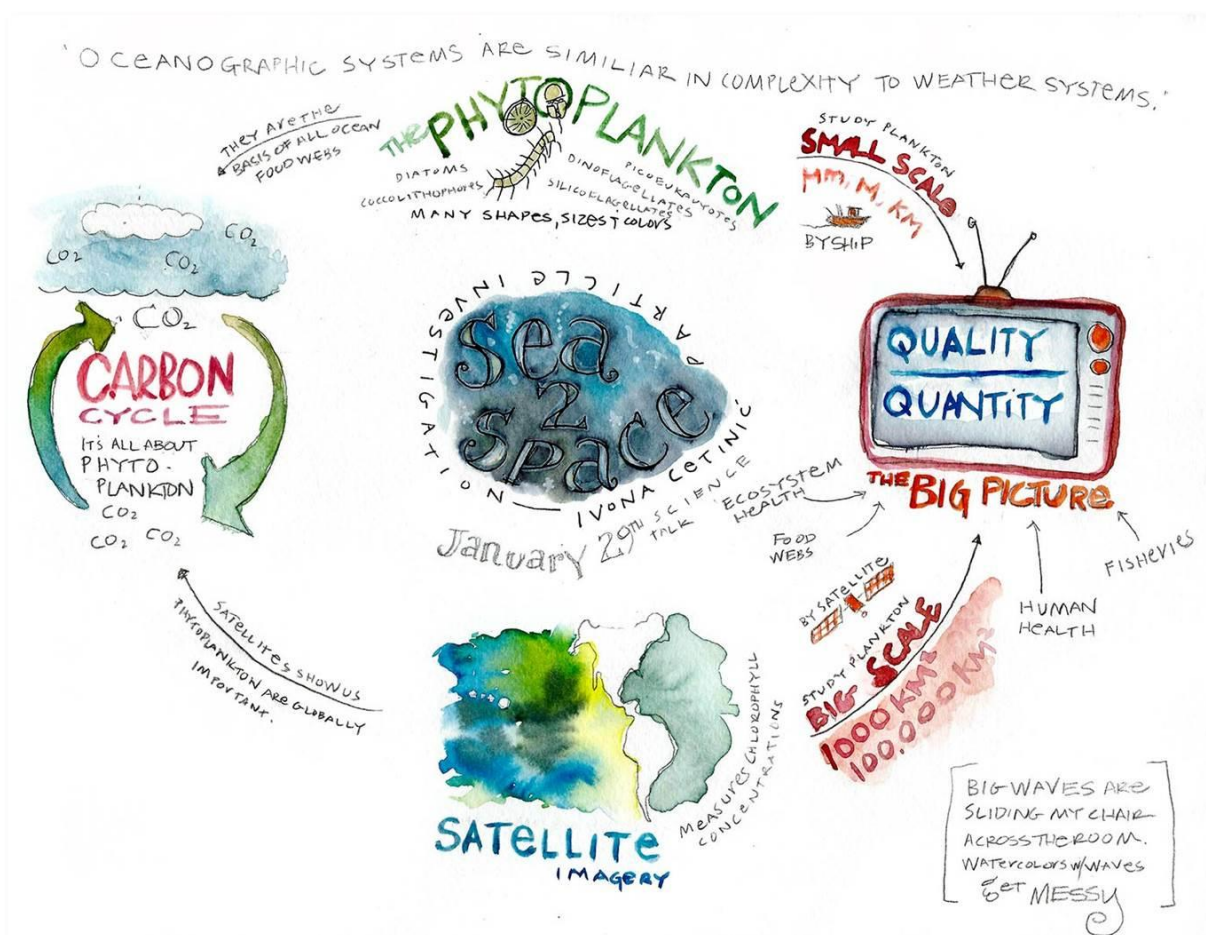 "OCEANOGRAPHIC SYSTEMS ARE SIMILIAR IN COMPLEXITY TO WEATHER SYSTEMS."
THEY ARE THE
BASIS OF ALL OCEAN
FOOD WEBS
THE PHYTOPLANKTON
DIATOMS
COCCOLITHOPHORES
DINOFLAGELLATES
SILICOFLAGELLATES
PICOEUKARYOTES
MANY SHAPES, SIZES + COLORS
STUDY PLANKTON
SMALL SCALE
MM, M, KM
BY SHIP
CO2
CO2
CO2
CO2
CARBON
CYCLE
IT'S ALL ABOUT
PHYTO-
PLANKTON
CO2
CO2
CO2
Sea
2
Space
PARTICLE INVESTIGATION
IVONA CETINIĆ
January 29TH SCIENCE
TALK
QUALITY
QUANTITY
THE BIG PICTURE
ECOSYSTEM
HEALTH
FOOD
WEBS
HUMAN
HEALTH
FISHERIES
BY SATELLITE
STUDY PLANKTON
BIG SCALE
1000 KM²
100,000 KM²
SATELLITES SHOW US
PHYTOPLANKTON ARE GLOBALLY
IMPORTANT.
MEASURES CHLOROPHYLL
CONCENTRATIONS
SATELLITE
IMAGERY
BIG WAVES ARE
SLIDING MY CHAIR
ACROSS THE ROOM.
WATERCOLORS W/WAVES
GET MESSY